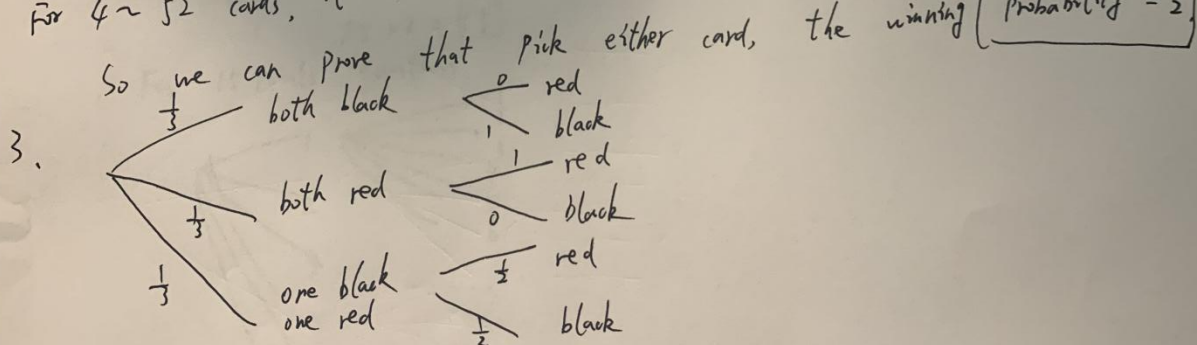 For 4 ~ 52 cards,
So we can prove that pick either card, the winning probability = 2
3.
1/3 both black 0 red
1 black
1/3 both red 1 red
0 black
1/3 one black 1/2 red
one red 1/2 black